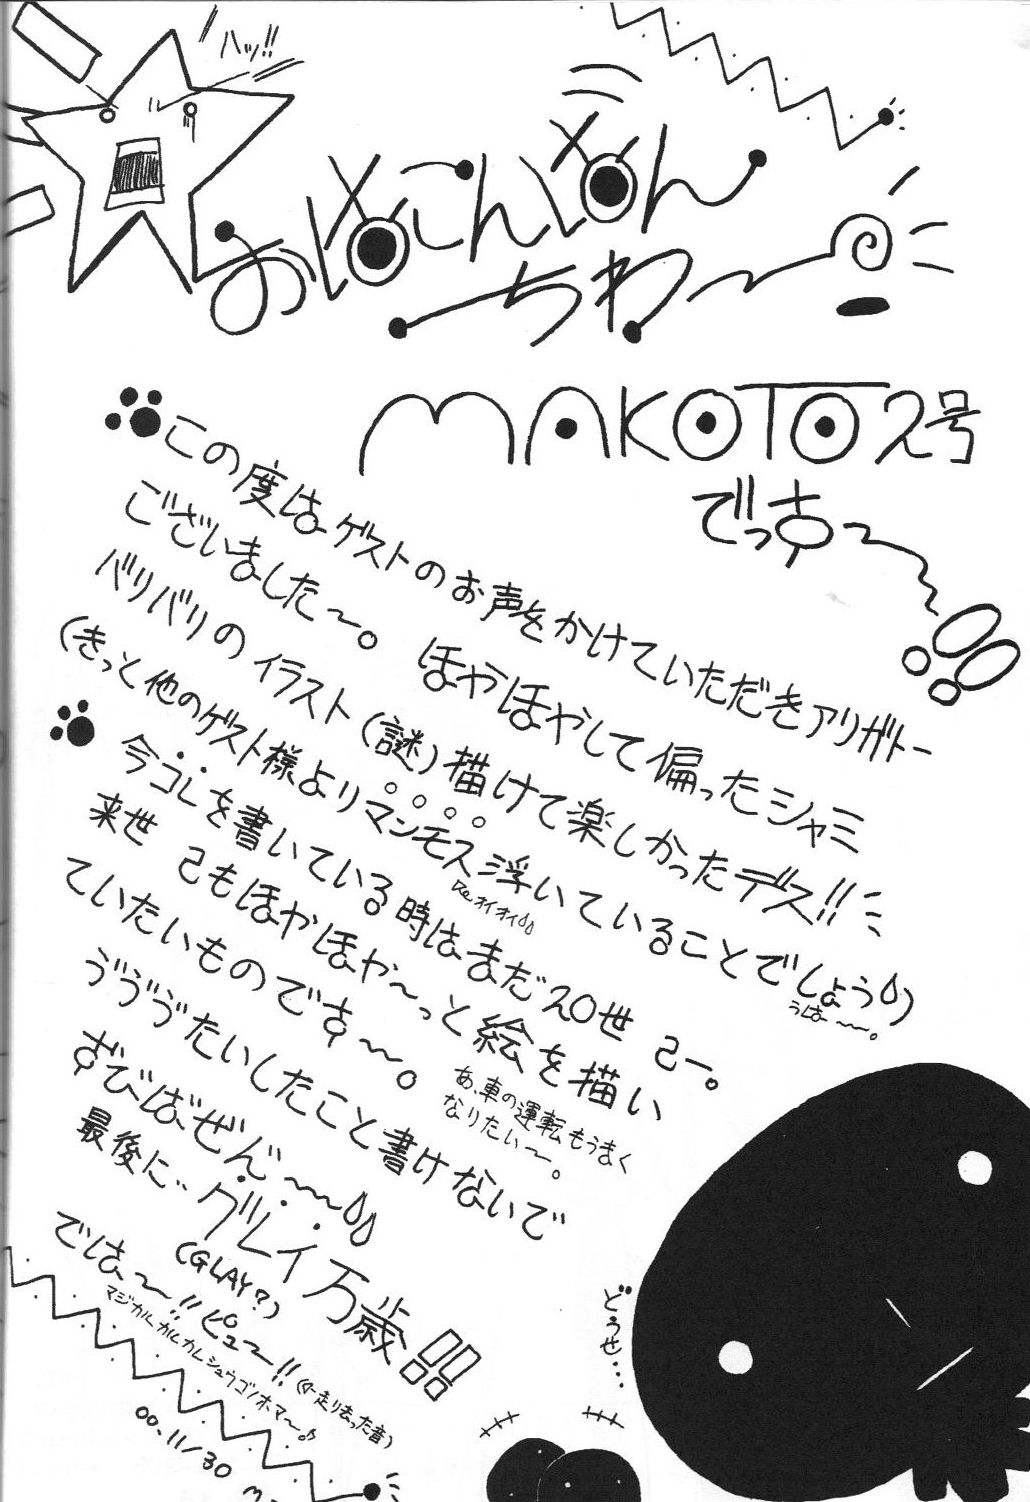 ハッ!!
おめこんばん
ちわー
MAKOTO2号
でっす〜!!
この度はゲストのお声をかけていただきアリガトー
ございました〜。ほやほやして偏ったシャミ
バリバリのイラスト(謎)描けて楽しかったデス!!
(きっと他のゲスト様よりマンモス浮いていることでしょう)
オイオイ
うはー〜。
今コレを書いている時はまだ20世己ー。
来世己もほやほや〜っと絵を描い
ていたいものです〜。
あ、車の運転もうまく
なりたい〜。
ゔゔゔたいしたこと書けないで
ずびばぜん〜
最後に…グレイ万歳!!
(GLAY?)
では〜!!ピュ〜!!(←走り去った音)
マジカルカルカルシュウゴノホマ〜♪
00.11/30
どうせ…